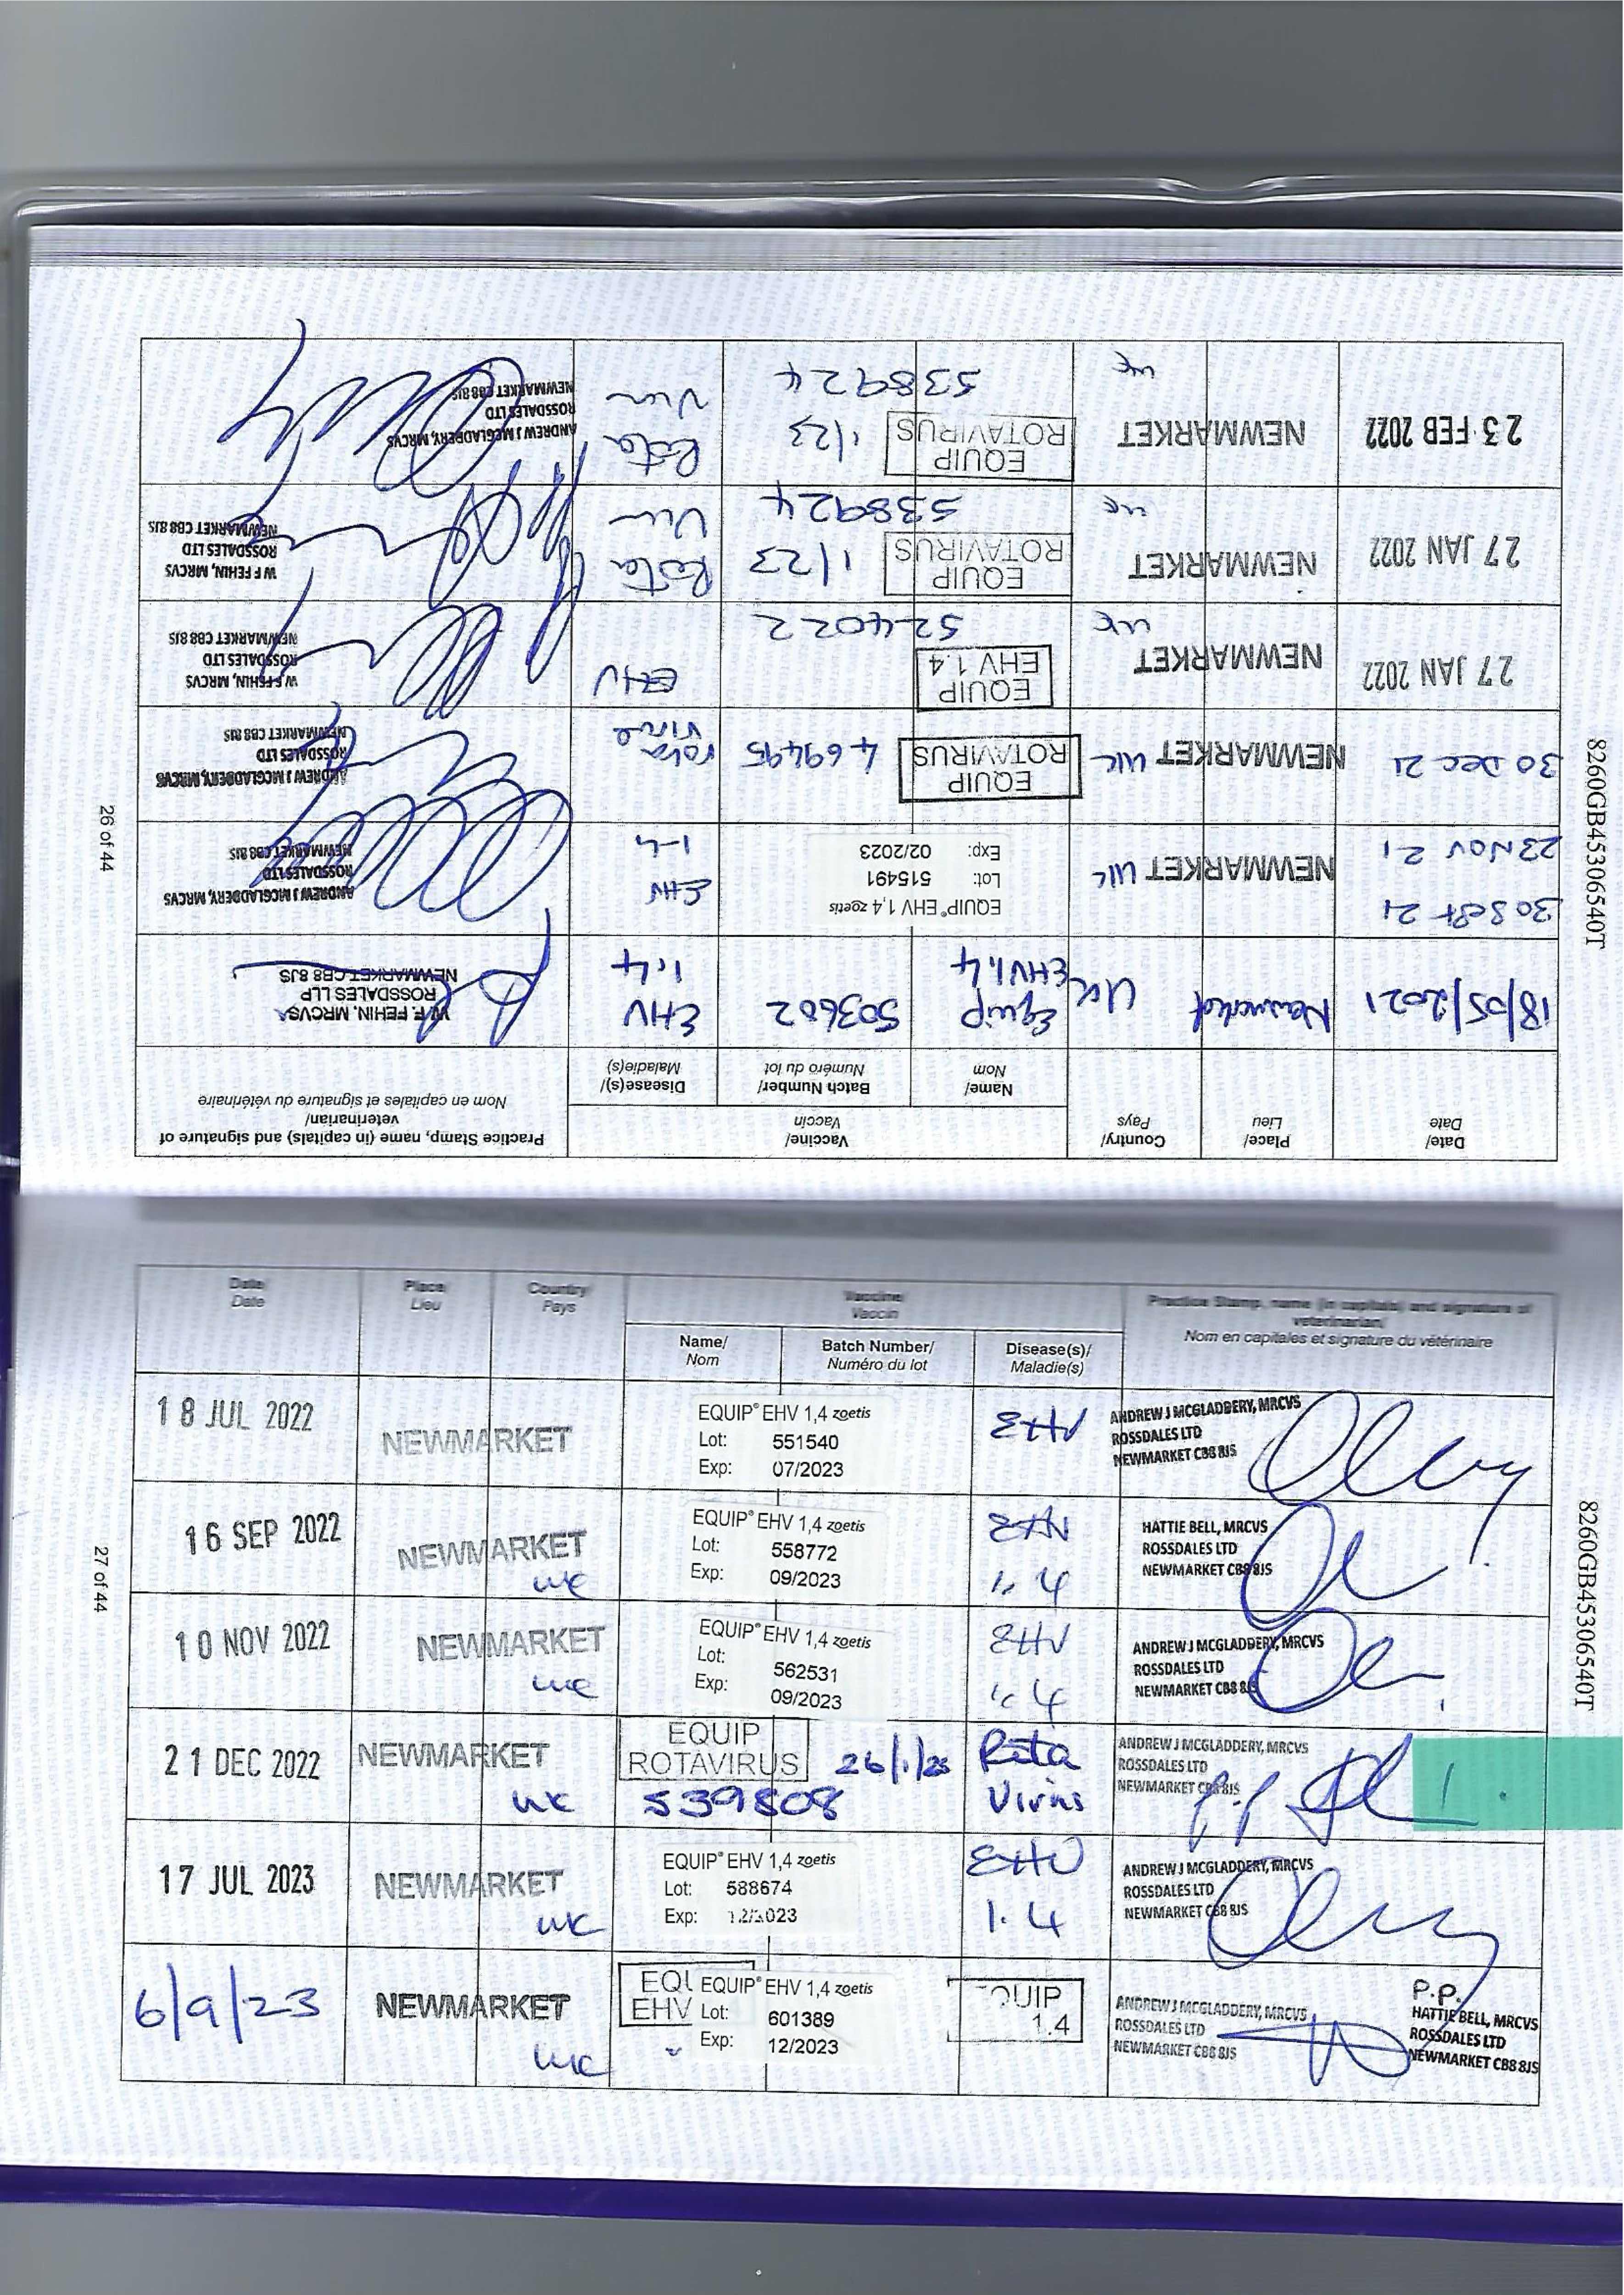 8260GB45306540T
Date/
Date
Place/
Lieu
Country/
Pays
Vaccine/
Vaccin
Practice Stamp, name (in capitals) and signature of
veterinarian/
Nom en capitales et signature du vétérinaire
Name/
Nom
Batch Number/
Numéro du lot
Disease(s)/
Maladie(s)
18/05/2021
Newmarket
UK
Equip
EHV1,4
503602
EHV
1,4
W. F. FEHIN, MRCVS
ROSSDALES LLP
NEWMARKET CB8 8JS
30 Sept 21
23 NOV 21
NEWMARKET UK
EQUIP® EHV 1,4 zoetis
Lot: 515491
Exp: 02/2023
EHV
1-4
ANDREW J MCGLADDERY, MRCVS
ROSSDALES LTD
NEWMARKET CB8 8JS
30 Dec 21
NEWMARKET UK
EQUIP
ROTAVIRUS
469495
rota
ANDREW J MCGLADDERY, MRCVS
ROSSDALES LTD
NEWMARKET CB8 8JS
27 JAN 2022
NEWMARKET
UK
EQUIP
EHV 1.4
524022
EHV
W F FEHIN, MRCVS
ROSSDALES LTD
NEWMARKET CB8 8JS
27 JAN 2022
NEWMARKET
UK
EQUIP
ROTAVIRUS
1/23
538924
Rota
W F FEHIN, MRCVS
ROSSDALES LTD
NEWMARKET CB8 8JS
23 FEB 2022
NEWMARKET
UK
EQUIP
ROTAVIRUS
1/23
538924
Rota
ANDREW J MCGLADDERY, MRCVS
ROSSDALES LTD
NEWMARKET CB8 8JS
26 of 44
Date/
Date
Place/
Lieu
Country/
Pays
Vaccine/
Vaccin
Practice Stamp, name (in capitals) and signature of
veterinarian/
Nom en capitales et signature du vétérinaire
Name/
Nom
Batch Number/
Numéro du lot
Disease(s)/
Maladie(s)
18 JUL 2022
NEWMARKET
EQUIP® EHV 1,4 zoetis
Lot: 551540
Exp: 07/2023
EHV
ANDREW J MCGLADDERY, MRCVS
ROSSDALES LTD
NEWMARKET CB8 8JS
16 SEP 2022
NEWMARKET
UK
EQUIP® EHV 1,4 zoetis
Lot: 558772
Exp: 09/2023
EHV
1, 4
HATTIE BELL, MRCVS
ROSSDALES LTD
NEWMARKET CB8 8JS
10 NOV 2022
NEWMARKET
UK
EQUIP® EHV 1,4 zoetis
Lot: 562531
Exp: 09/2023
EHV
1, 4
ANDREW J MCGLADDERY, MRCVS
ROSSDALES LTD
NEWMARKET CB8 8JS
21 DEC 2022
NEWMARKET
UK
EQUIP
ROTAVIRUS
539808
Rota
Virus
ANDREW J MCGLADDERY, MRCVS
ROSSDALES LTD
NEWMARKET CB8 8JS
p.p
17 JUL 2023
NEWMARKET
UK
EQUIP® EHV 1,4 zoetis
Lot: 588674
Exp: 12/2023
EHV
1.4
ANDREW J MCGLADDERY, MRCVS
ROSSDALES LTD
NEWMARKET CB8 8JS
6/9/23
NEWMARKET
UK
EQUIP® EHV 1,4 zoetis
Lot: 601389
Exp: 12/2023
EHV
1.4
ANDREW J MCGLADDERY, MRCVS
ROSSDALES LTD
NEWMARKET CB8 8JS
P.P.
HATTIE BELL, MRCVS
ROSSDALES LTD
NEWMARKET CB8 8JS
27 of 44
8260GB45306540T